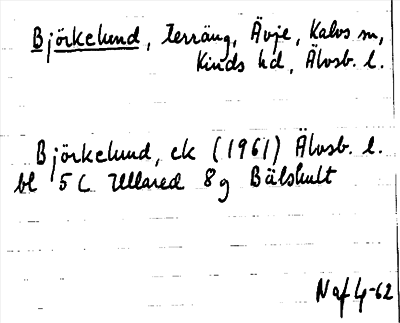 Björkelund, terräng, Ävje, Kalvs sn,
Kinds hd, Älvsb. l.
Björkelund, ek (1961) Älvsb. l.
bl 5 C Ullared 8g Bälshult
Naf 4-62